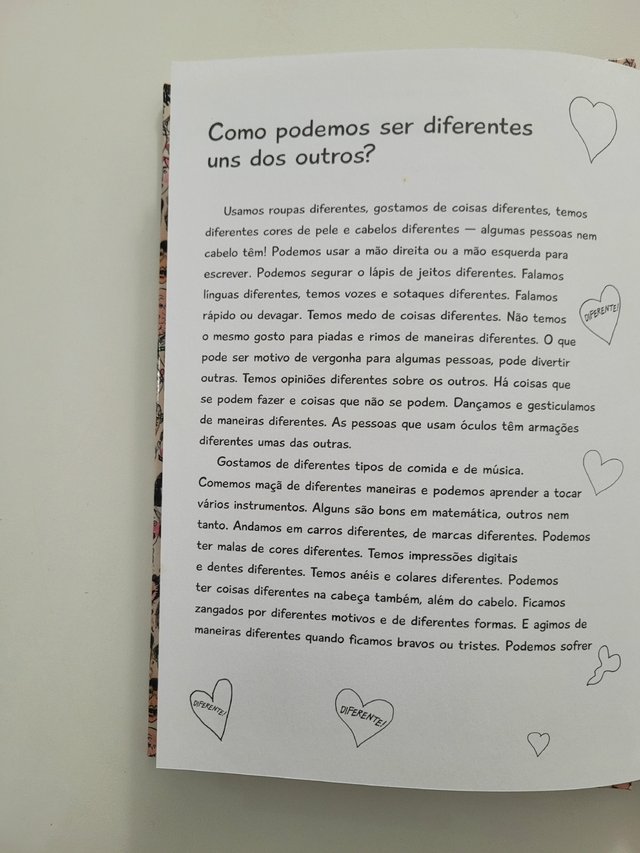 Como podemos ser diferentes
uns dos outros?
Usamos roupas diferentes, gostamos de coisas diferentes, temos
diferentes cores de pele e cabelos diferentes — algumas pessoas nem
cabelo têm! Podemos usar a mão direita ou a mão esquerda para
escrever. Podemos segurar o lápis de jeitos diferentes. Falamos
línguas diferentes, temos vozes e sotaques diferentes. Falamos
rápido ou devagar. Temos medo de coisas diferentes. Não temos
o mesmo gosto para piadas e rimos de maneiras diferentes. O que
pode ser motivo de vergonha para algumas pessoas, pode divertir
outras. Temos opiniões diferentes sobre os outros. Há coisas que
se podem fazer e coisas que não se podem. Dançamos e gesticulamos
de maneiras diferentes. As pessoas que usam óculos têm armações
diferentes umas das outras.
Gostamos de diferentes tipos de comida e de música.
Comemos maçã de diferentes maneiras e podemos aprender a tocar
vários instrumentos. Alguns são bons em matemática, outros nem
tanto. Andamos em carros diferentes, de marcas diferentes. Podemos
ter malas de cores diferentes. Temos impressões digitais
e dentes diferentes. Temos anéis e colares diferentes. Podemos
ter coisas diferentes na cabeça também, além do cabelo. Ficamos
zangados por diferentes motivos e de diferentes formas. E agimos de
maneiras diferentes quando ficamos bravos ou tristes. Podemos sofrer
DIFERENTE!
DIFERENTE!
DIFERENTE!